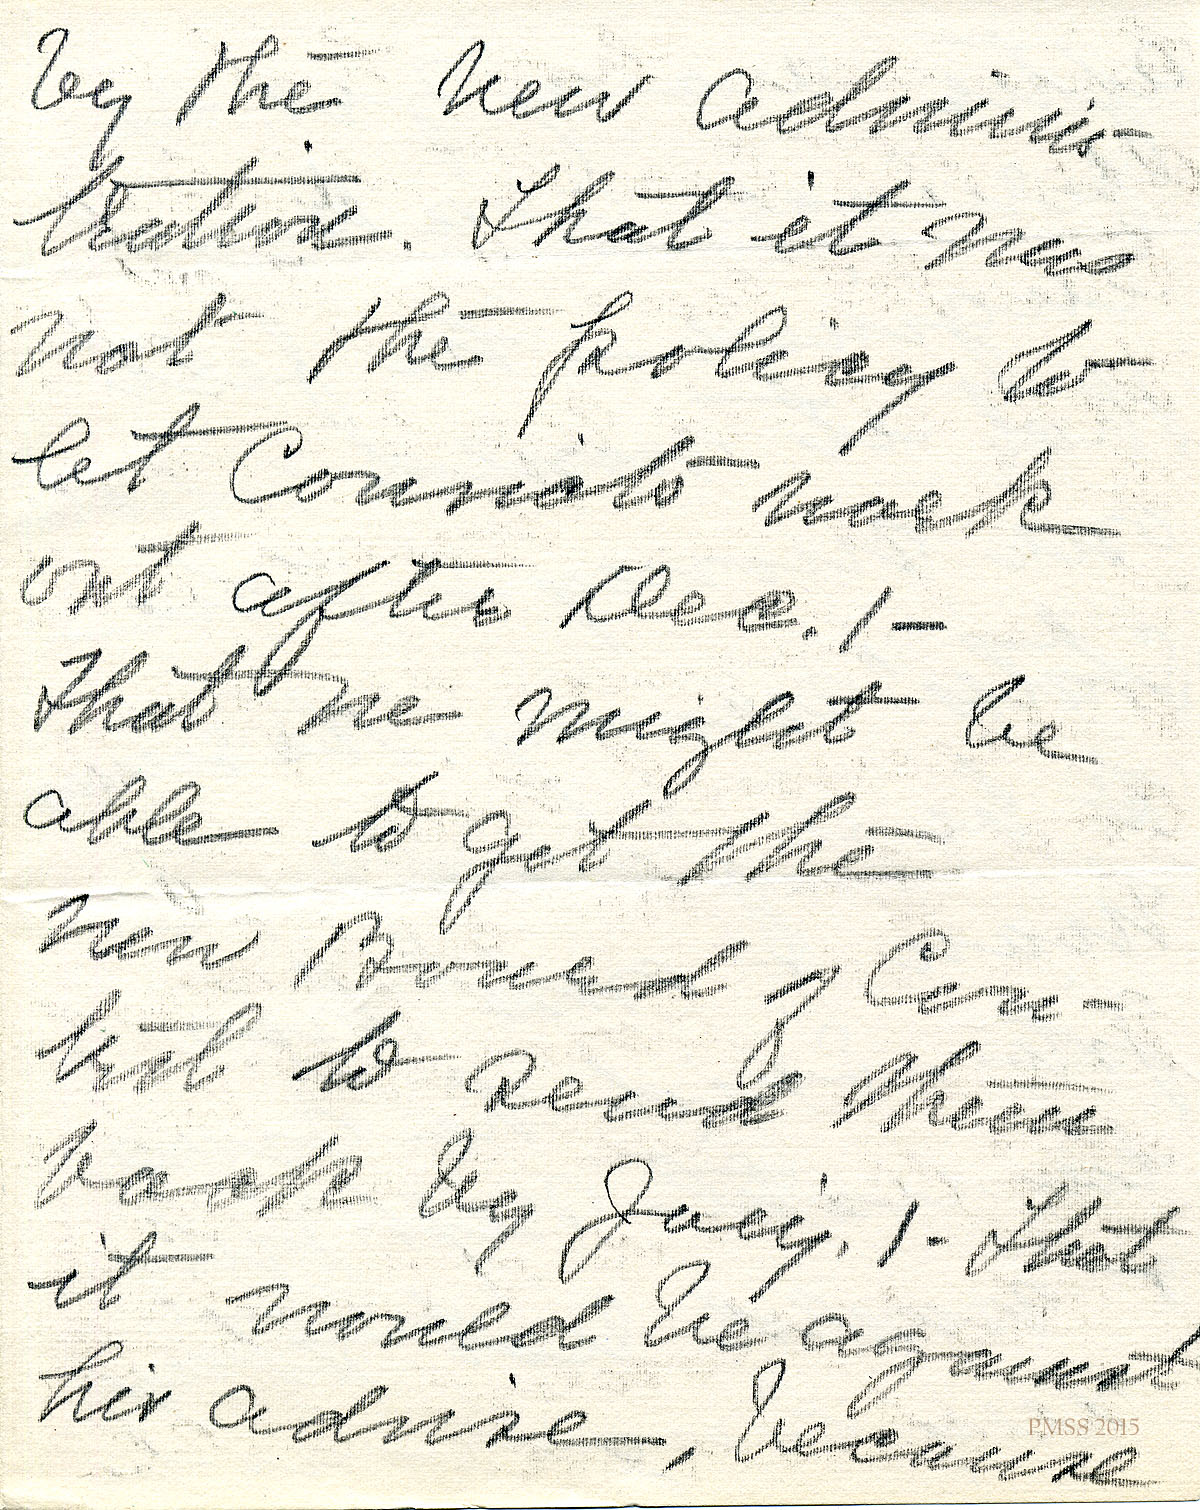 by the new adminis-
tration. That it was
not the policy to
let Convicts work
out after Dec. 1-
That we might be
able to get the
new Board of Con-
trol to send them
back by Jany. 1- That
it would be against
his advise, because
PMSS 2015